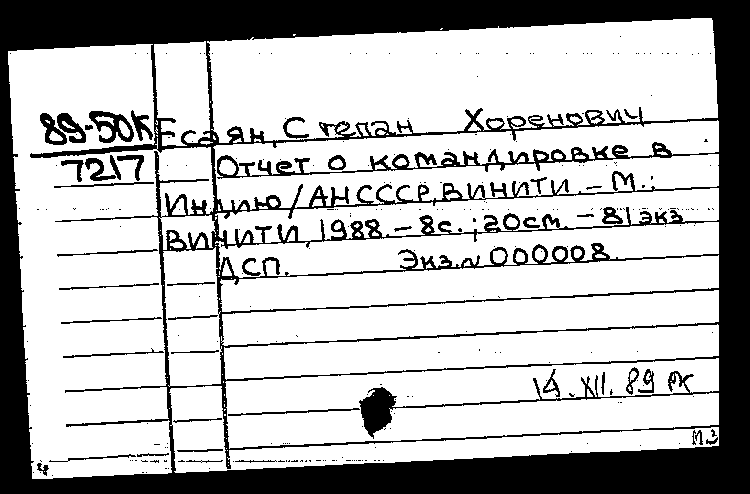 89-50К Есаян, Степан Хоренович
7217 Отчет о командировке в
Индию / АН СССР, ВИНИТИ. – М.:
ВИНИТИ, 1988. – 8с.; 20см. – 81 экз
ДСП. Экз. N 000008
14. XII. 89 РК